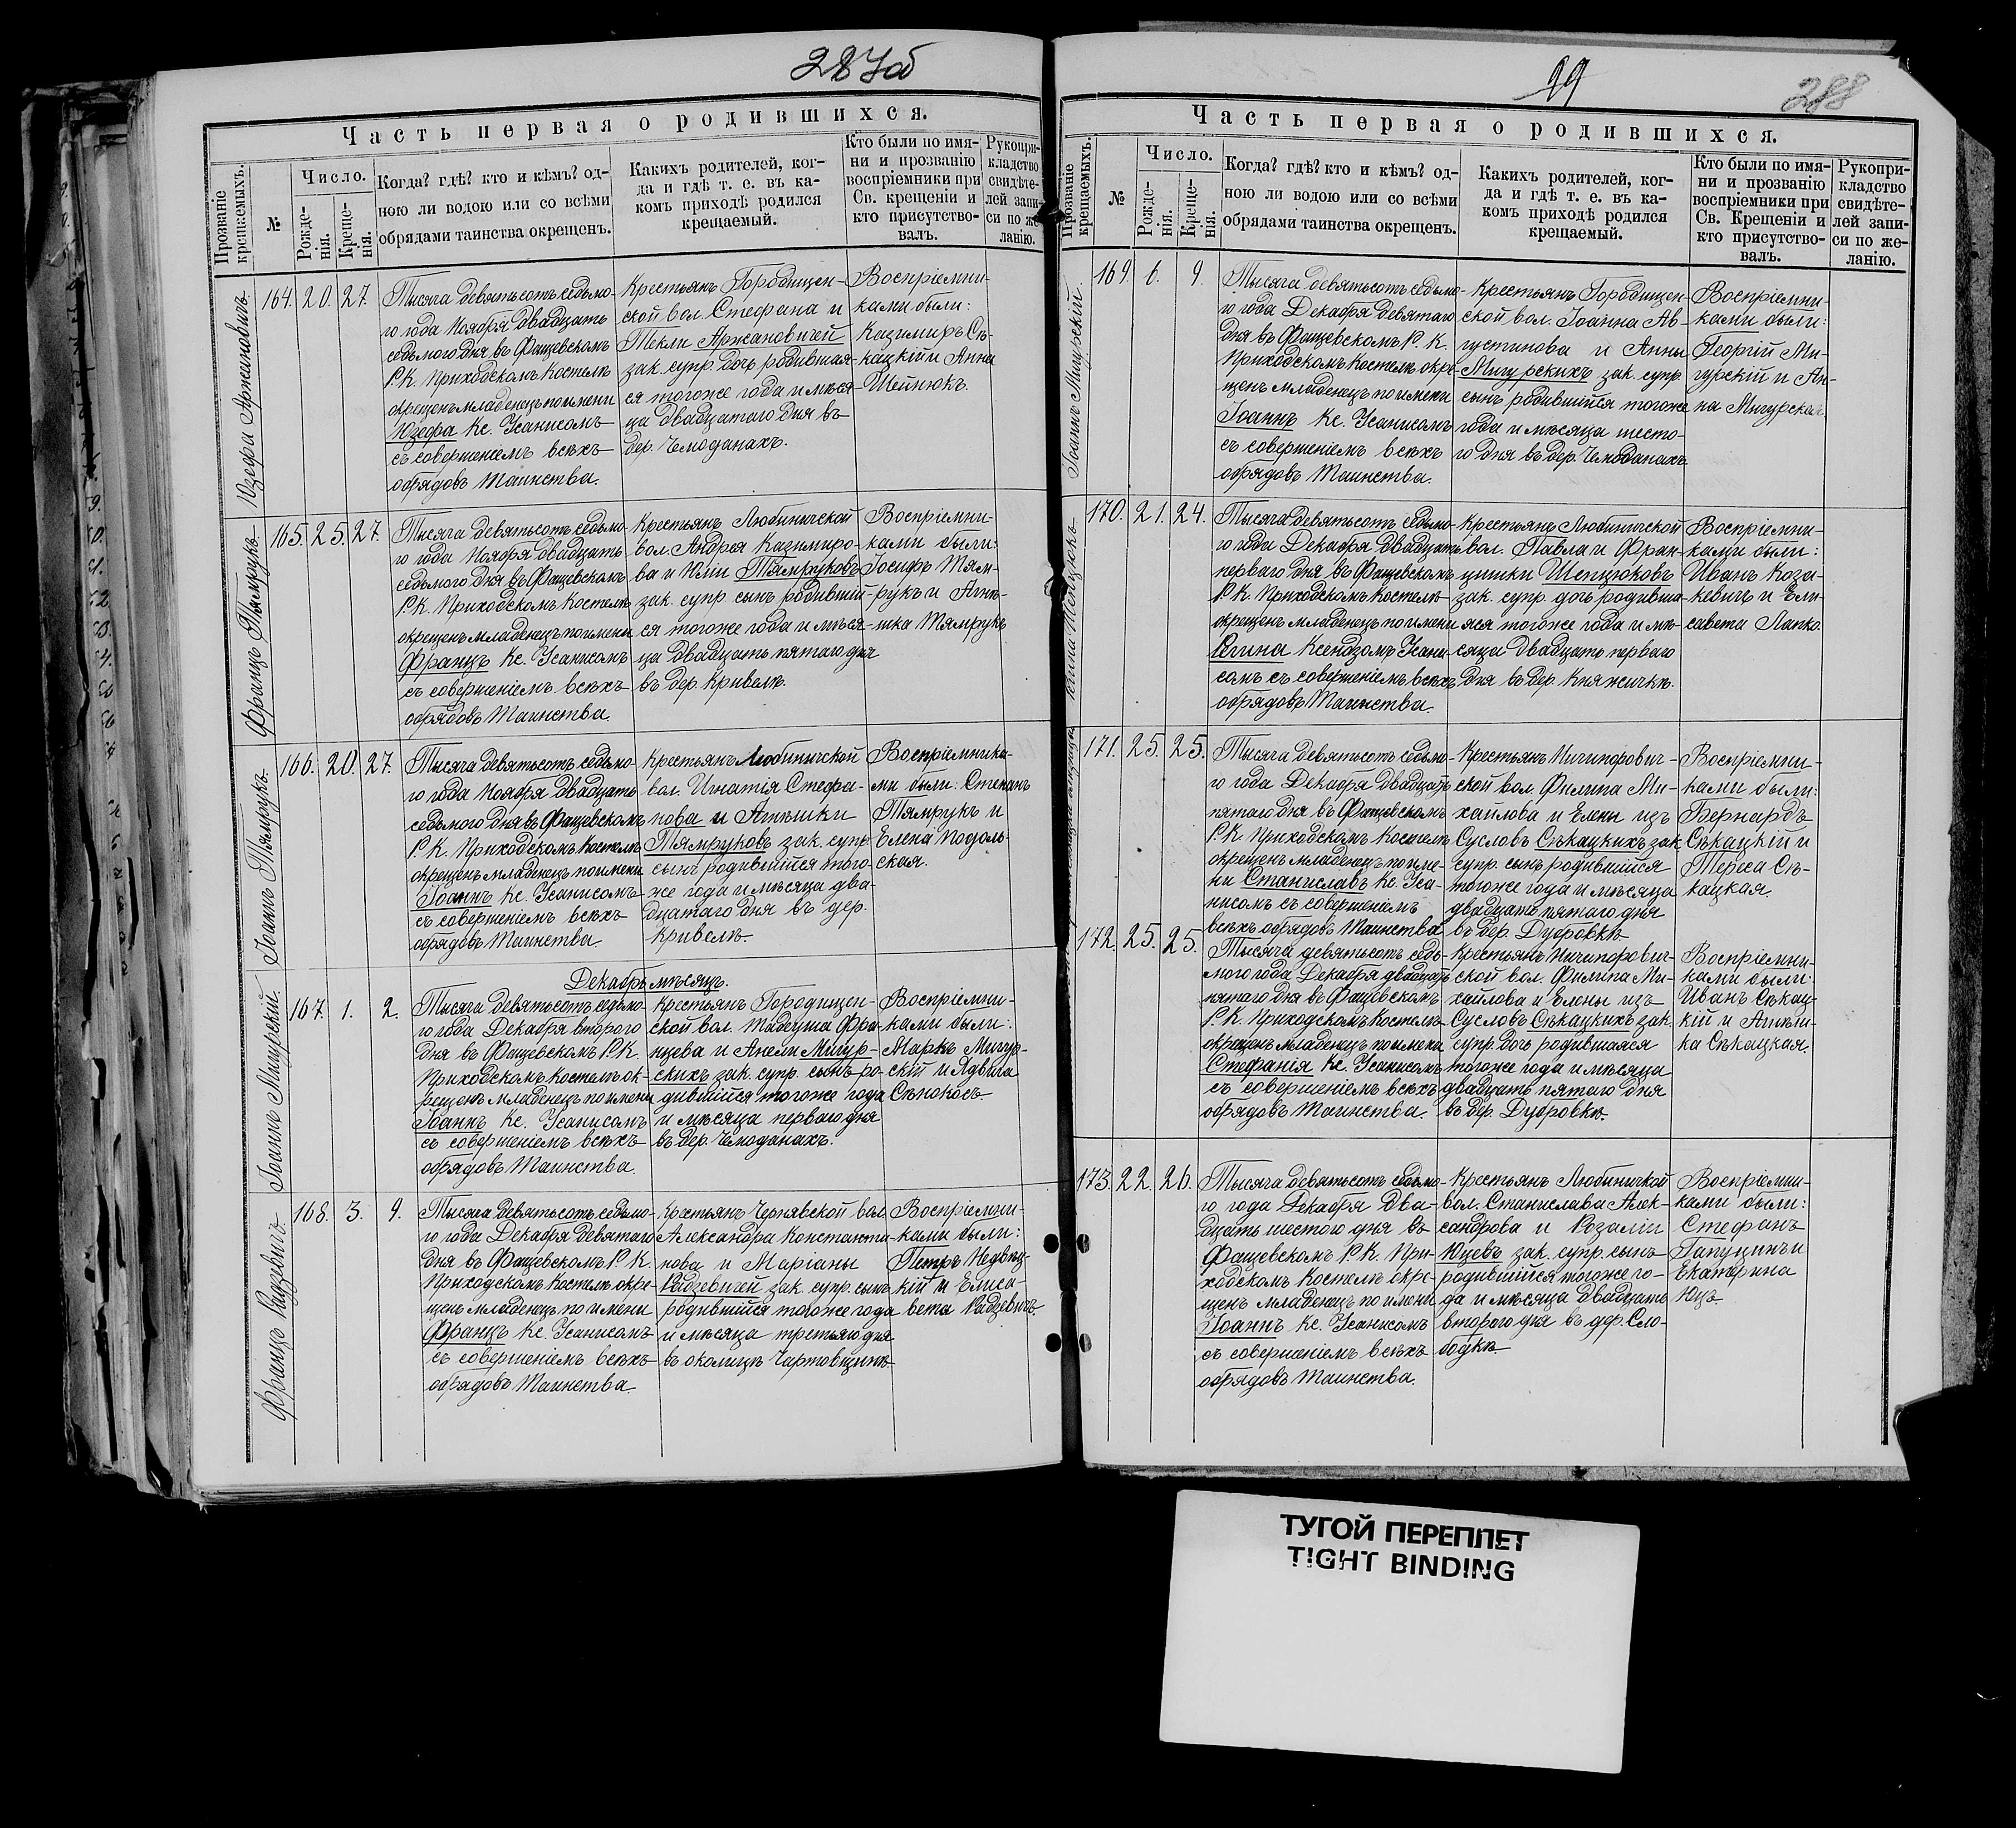 287об
Часть первая о родившихся.
Прозваніе крещаемыхъ.
№
Число.
Рожде-
нія.
Креще-
нія.
Когда? гдѣ? кто и кѣмъ? од-
ною ли водою или со всѣми
обрядами таинства окрещенъ.
Какихъ родителей, ког-
да и гдѣ т. е. въ ка-
комъ приходѣ родился
крещаемый.
Кто были по имя-
ни и прозванію
воспріемники при
Св. крещеніи и
кто присутство-
валъ.
Рукопри-
кладство
свидѣте-
лей запи-
си по же-
ланію.
Юзефа Аржановичъ
164. 20. 27.
Тысяча девятьсотъ седьмо-
го года Ноября двадцать
седьмого дня въ Фащевскомъ
Р.К. Приходскомъ Костелѣ
окрещенъ младенецъ по имени
Юзефа Кс. Усанисомъ
съ совершеніемъ всѣхъ
обрядовъ Таинства.
Крестьянъ Горбацен-
ской вол. Стефана и
Текли Аржановичей
зак. супр. дочь родившая-
ся тогоже года и мѣся-
ца двадцатаго дня въ
дер. Чемоданахъ.
Воспріемни-
ками были:
Казимиръ Сѣ-
кацкій и Анна
Шейнюкъ.
Францъ Тямрукъ
165. 25. 27.
Тысяча девятьсотъ седьмо-
го года Ноября двадцать
седьмого дня въ Фащевскомъ
Р.К. Приходскомъ Костелѣ
окрещенъ младенецъ по имени
Францъ Кс. Усанисомъ
съ совершеніемъ всѣхъ
обрядовъ Таинства.
Крестьянъ Любиничской
вол. Андрея Казимиро-
ва и Юліи Тямруковъ
зак. супр. сынъ родившій-
ся тогоже года и мѣся-
ца двадцать пятаго дня
въ дер. Кривелѣ.
Воспріемни-
ками были:
Іосифъ Тям-
рукъ и Агнѣ-
шка Тямрукъ
Іоаннъ Тямрукъ
166. 20. 27.
Тысяча девятьсотъ седьмо-
го года Ноября двадцать
седьмого дня въ Фащевскомъ
Р.К. Приходскомъ Костелѣ
окрещенъ младенецъ по имени
Іоаннъ Кс. Усанисомъ
съ совершеніемъ всѣхъ
обрядовъ Таинства.
Крестьянъ Любиничской
вол. Игнатія Стефа-
нова и Агнѣшки
Тямруковъ зак. супр.
сынъ родившійся того-
же года и мѣсяца два-
дцатаго дня въ дер.
Кривелѣ.
Воспріемника-
ми были: Степанъ
Тямрукъ и
Елена Подоль-
ская.
Декабрь мѣсяцъ.
Іоаннъ Мигурскій.
167. 1. 2.
Тысяча девятьсотъ седьмо-
го года Декабря второго
дня въ Фащевскомъ Р.К.
Приходскомъ Костелѣ ок-
рещенъ младенецъ по имени
Іоаннъ Кс. Усанисомъ
съ совершеніемъ всѣхъ
обрядовъ Таинства.
Крестьянъ Городищен-
ской вол. Тадеуша Фра-
нцева и Анели Мигур-
скихъ зак. супр. сынъ ро-
дившійся тогоже года
и мѣсяца перваго дня
въ дер. Чемоданахъ.
Воспріемни-
ками были:
Маркъ Мигур-
скій и Ядвига
Сѣнокосъ.
Францъ Радзевичъ
168. 3. 9.
Тысяча девятьсотъ седьмо-
го года Декабря девятаго
дня въ Фащевскомъ Р.К.
Приходскомъ Костелѣ окре-
щенъ младенецъ по имени
Францъ Кс. Усанисомъ
съ совершеніемъ всѣхъ
обрядовъ Таинства
Крестьянъ Чернявской вол.
Александра Константи-
нова и Маріаны
Радзевичей зак. супр. сынъ
родившійся тогоже года
и мѣсяца третьяго дня
въ околицѣ Чертовщинѣ
Воспріемни-
ками были:
Петръ Недвѣц-
кій и Елиса-
вета Радзевичъ.
99
288
Часть первая о родившихся.
Прозваніе крещаемыхъ.
№
Число.
Рожде-
нія.
Креще-
нія.
Когда? гдѣ? кто и кѣмъ? од-
ною ли водою или со всѣми
обрядами таинства окрещенъ.
Какихъ родителей, ког-
да и гдѣ т. е. въ ка-
комъ приходѣ родился
крещаемый.
Кто были по имя-
ни и прозванію
воспріемники при
Св. Крещеніи и
кто присутство-
валъ.
Рукопри-
кладство
свидѣте-
лей запи-
си по же-
ланію.
Іоаннъ Мигурскій
169. 6. 9.
Тысяча девятьсотъ седьмо-
го года Декабря девятаго
дня въ Фащевскомъ Р.К.
Приходскомъ Костелѣ окре-
щенъ младенецъ по имени
Іоаннъ Кс. Усанисомъ
съ совершеніемъ всѣхъ
обрядовъ Таинства.
Крестьянъ Горбацен-
ской вол. Іоанна Ав-
густинова и Анны
Мигурскихъ зак. супр.
сынъ родившійся тогоже
года и мѣсяца шесто-
го дня въ дер. Чемоданахъ
Воспріемни-
ками были:
Георгій Ми-
гурскій и Ан-
на Мигурская
Шепцюкъ
170. 21. 24.
Тысяча девятьсотъ седьмо-
го года Декабря двадцать
перваго дня въ Фащевскомъ
Р.К. Приходскомъ Костелѣ
окрещенъ младенецъ по имени
Регина Ксендзомъ Усани-
сомъ съ совершеніемъ всѣхъ
обрядовъ Таинства.
Крестьянъ Любиничской
вол. Павла и Фран-
цишки Шепцюковъ
зак. супр. дочь родивша-
яся тогоже года и мѣ-
сяца двадцать перваго
дня въ дер. Княжичкѣ.
Воспріемни-
ками были:
Иванъ Коза-
кевичъ и Ели-
савета Лапко.
171. 25. 25.
Тысяча девятьсотъ седьмо-
го года Декабря двадцать
пятаго дня въ Фащевскомъ
Р.К. Приходскомъ Костелѣ
окрещенъ младенецъ по име-
ни Станиславъ Кс. Уса-
нисомъ съ совершеніемъ
всѣхъ обрядовъ Таинства
Крестьянъ Ничипорович-
ской вол. Филипа Ми-
хайлова и Елены изъ
Сусловъ Сѣкацкихъ зак.
супр. сынъ родившійся
тогоже года и мѣсяца
двадцать пятаго дня
въ дер. Дубровкѣ
Воспріемни-
ками были:
Бернардъ
Сѣкацкій и
Тереса Сѣ-
кацкая.
172. 25. 25.
Тысяча девятьсотъ седь-
мого года Декабря двадцать
пятаго дня въ Фащевскомъ
Р.К. Приходскомъ Костелѣ
окрещенъ младенецъ по имени
Стефанія Кс. Усанисомъ
съ совершеніемъ всѣхъ
обрядовъ Таинства.
Крестьянъ Ничипорович-
ской вол. Филипа Ми-
хайлова и Елены изъ
Сусловъ Сѣкацкихъ зак.
супр. дочь родившаяся
тогоже года и мѣсяца
двадцать пятаго дня
въ дер. Дубровкѣ.
Воспріемни-
ками были:
Иванъ Сѣкац-
кій и Агнѣш-
ка Сѣкацкая.
173. 22. 26.
Тысяча девятьсотъ седьмо-
го года Декабря два-
дцать шестого дня въ
Фащевскомъ Р.К. При-
ходскомъ Костелѣ окре-
щенъ младенецъ по имени
Іоаннъ Кс. Усанисомъ
съ совершеніемъ всѣхъ
обрядовъ Таинства.
Крестьянъ Любиничской
вол. Станислава Алек-
сандрова и Розаліи
Юцевъ зак. супр. сынъ
родившійся тогоже го-
да и мѣсяца двадцать
второго дня въ дер. Сло-
бодкѣ.
Воспріемни-
ками были:
Стефанъ
Гапуцинъ и
Екатерина
Юцъ.
ТУГОЙ ПЕРЕПЛЕТ
TIGHT BINDING